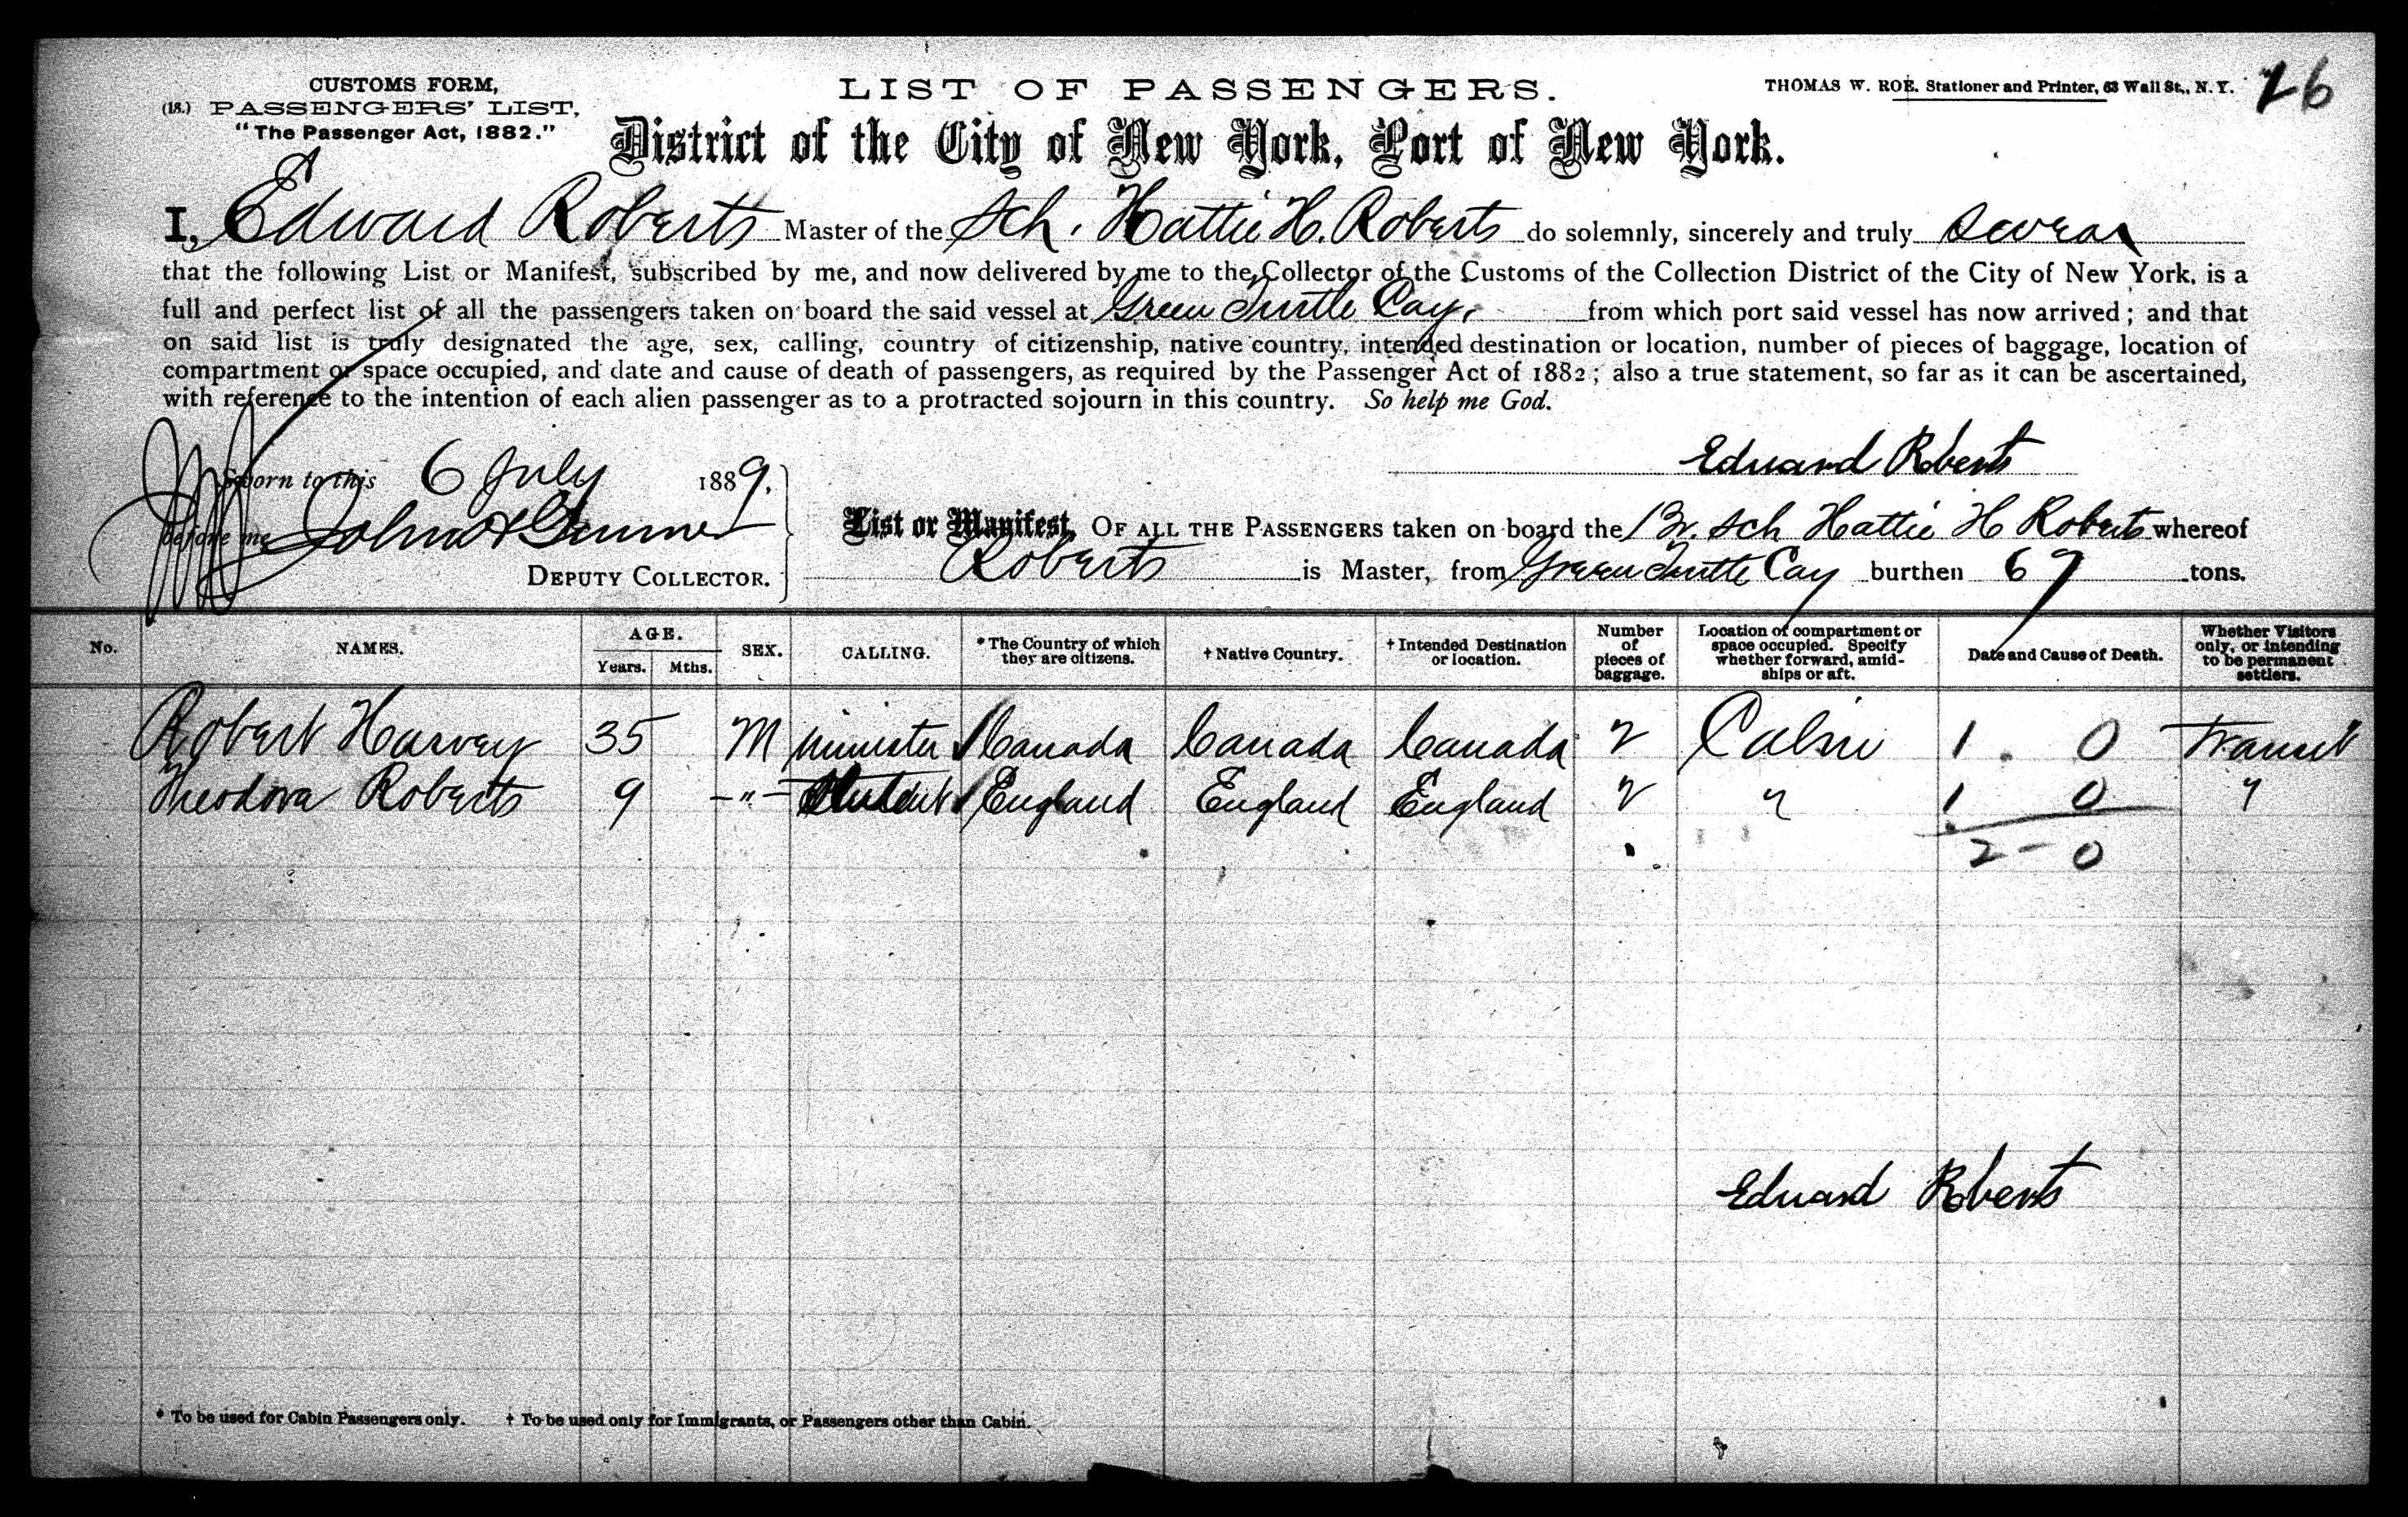 CUSTOMS FORM,
(18.) PASSENGERS' LIST,
"The Passenger Act, 1882."
LIST OF PASSENGERS.
THOMAS W. ROE, Stationer and Printer, 63 Wall St., N. Y.
26
District of the City of New York, Port of New York.
I, Edward Roberts Master of the Sch. Hattie H. Roberts do solemnly, sincerely and truly swear
that the following List or Manifest, subscribed by me, and now delivered by me to the Collector of the Customs of the Collection District of the City of New York, is a
full and perfect list of all the passengers taken on board the said vessel at Green Turtle Cay, from which port said vessel has now arrived; and that
on said list is truly designated the age, sex, calling, country of citizenship, native country, intended destination or location, number of pieces of baggage, location of
compartment or space occupied, and date and cause of death of passengers, as required by the Passenger Act of 1882; also a true statement, so far as it can be ascertained,
with reference to the intention of each alien passenger as to a protracted sojourn in this country. So help me God.
Edward Roberts
Sworn to this 6 July 1889,
before me John
DEPUTY COLLECTOR.
List or Manifest, OF ALL THE PASSENGERS taken on board the Br. Sch Hattie H Roberts whereof
Roberts is Master, from Green Turtle Cay burthen 69 tons.
No. NAMES. AGE. Years. Mths. SEX. CALLING. * The Country of which they are citizens. † Native Country. † Intended Destination or location. Number of pieces of baggage. Location of compartment or space occupied. Specify whether forward, amidships or aft. Date and Cause of Death. Whether Visitors only, or intending to be permanent settlers.
Robert Harvey 35 M minister Canada Canada Canada 2 Cabin 1 . 0 Transit
Theodora Roberts 9 -"- Student England England England 2 " 1 0 "
2 - 0
Edward Roberts
* To be used for Cabin Passengers only. † To be used only for Immigrants, or Passengers other than Cabin.